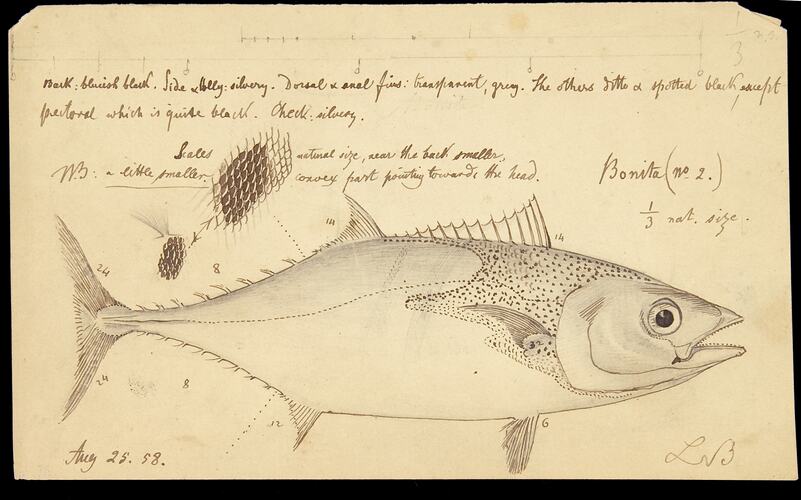 1/3 n.s.
Back: bluish black. Side & belly: silvery. Dorsal & anal fins: transparent, grey. The others ditto & spotted black, except
pectoral which is quite black. Cheek: silvery.
Scales natural size, near the back smaller,
NB: a little smaller. convex part pointing towards the head.
Bonita (no 2.)
1/3 nat. size.
14
14
24
8
32
24
8
12
6
Aug 25. 58.
LB